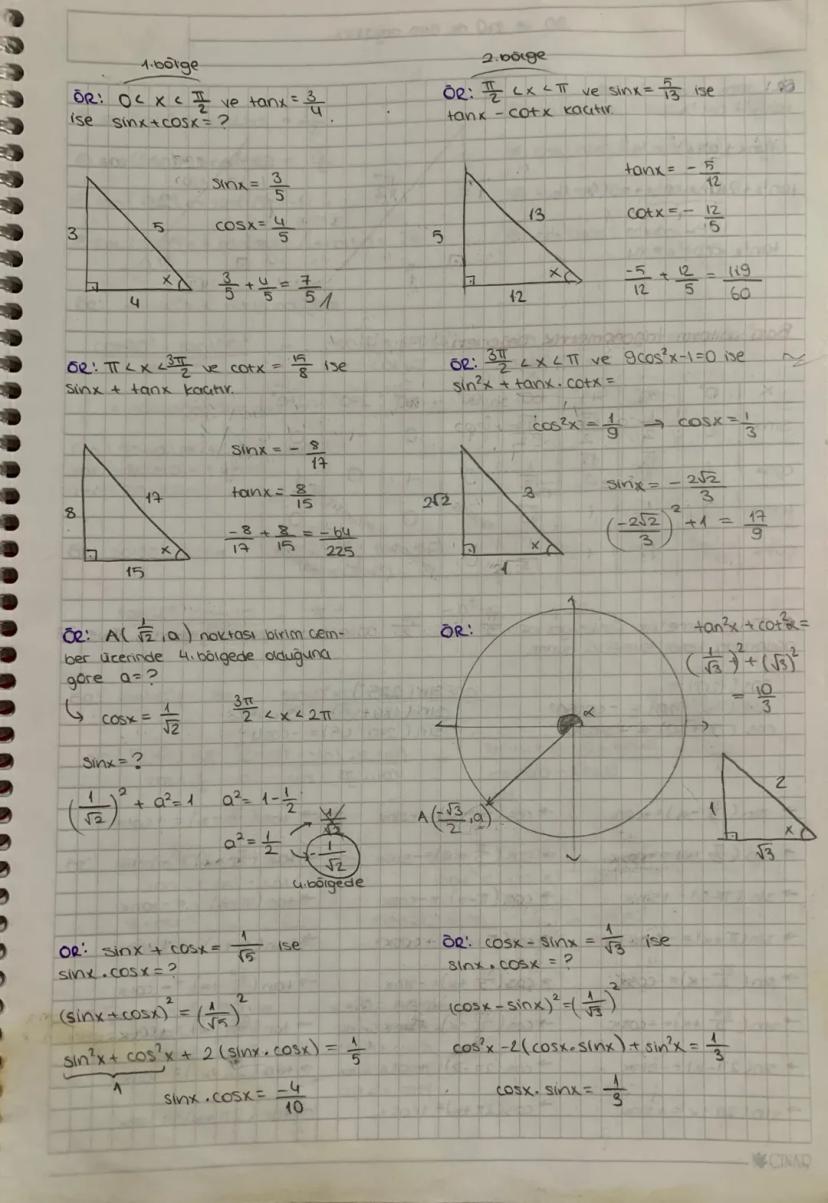 1.bölge
ÖR: 0 < x < π/2 ve tanx = 3/4
ise sinx+cosx = ?
3
5
4
x
sinx = 3/5
cosx = 4/5
3/5 + 4/5 = 7/5
2.bölge
ÖR: π/2 < x < π ve sinx = 5/13 ise
tanx - cotx kaçtır.
5
13
12
x
tanx = - 5/12
cotx = - 12/5
-5/12 + 12/5 = 119/60
ÖR: π < x < 3π/2 ve cotx = 15/8 ise
sinx + tanx kaçtır.
8
17
15
x
sinx = - 8/17
tanx = 8/15
-8/17 + 8/15 = -64/225
ÖR: 3π/2 < x < π ve 9cos²x-1=0 ise
sin²x + tanx . cotx =
cos²x = 1/9 → cosx = 1/3
2√2
3
1
x
sinx = - 2√2/3
(-2√2/3)² + 1 = 17/9
ÖR: A(1/√2, a) noktası birim çem-
ber üzerinde 4.bölgede olduğuna
göre a = ?
↳ cosx = 1/√2 3π/2 < x < 2π
sinx = ?
(1/√2)² + a² = 1 a² = 1 - 1/2
a² = 1/2
1/√2
- 1/√2
4.bölgede
ÖR:
α
A(-√3/2, a)
tan²x + cot²x =
(1/√3)² + (√3)²
= 10/3
1
2
√3
x
ÖR: sinx + cosx = 1/√5 ise
sinx . cosx = ?
(sinx + cosx)² = (1/√5)²
sin²x + cos²x + 2(sinx . cosx) = 1/5
1
sinx . cosx = -4/10
ÖR: cosx - sinx = 1/√3 ise
sinx . cosx = ?
(cosx - sinx)² = (1/√3)²
cos²x - 2(cosx . sinx) + sin²x = 1/3
cosx . sinx = 1/3
ÇINAR